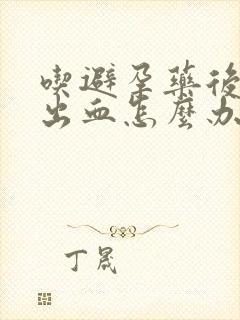 喫避孕藥後
出血怎麼办
丁晟